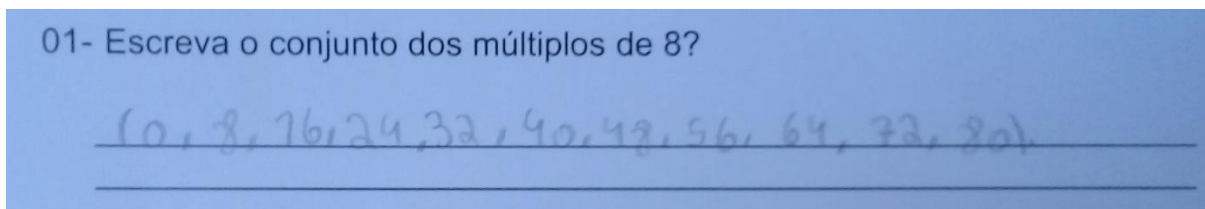 01- Escreva o conjunto dos múltiplos de 8?
(0, 8, 16, 24, 32, 40, 48, 56, 64, 72, 80).